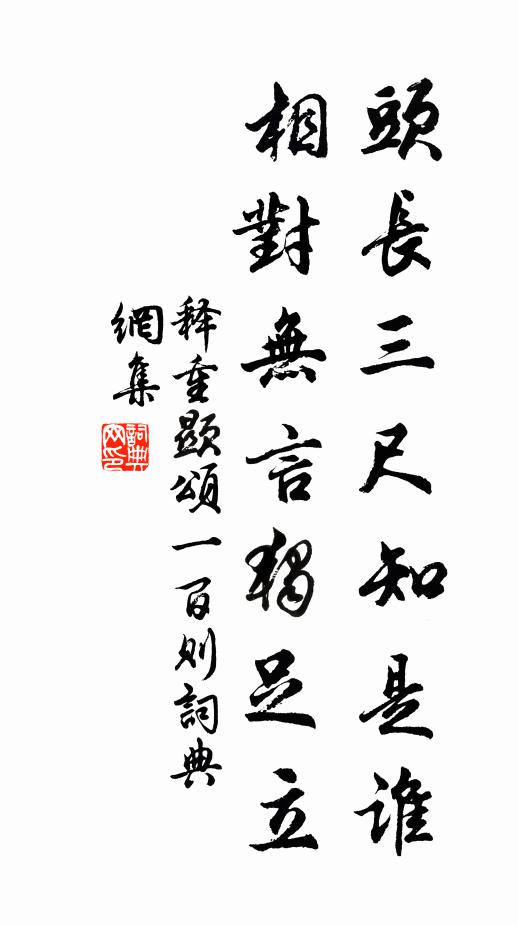 頭長三尺知是誰
相對無言獨足立
释重顯頌一百则詞典
網集
詞典网印